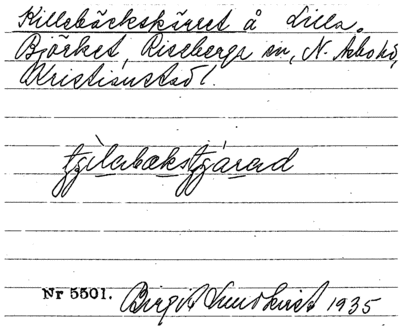 Killebäckskärret å Lilla
Björket, Riseberga sn, N. Åsbo hd,
Kristianstads l.
Nr 5501. Birgit Lundkvist 1935